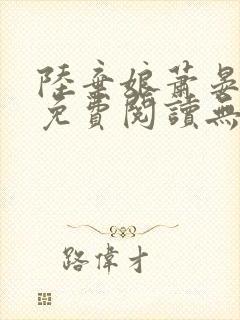 陸棄娘蕭晏
免費閱讀無
路偉才